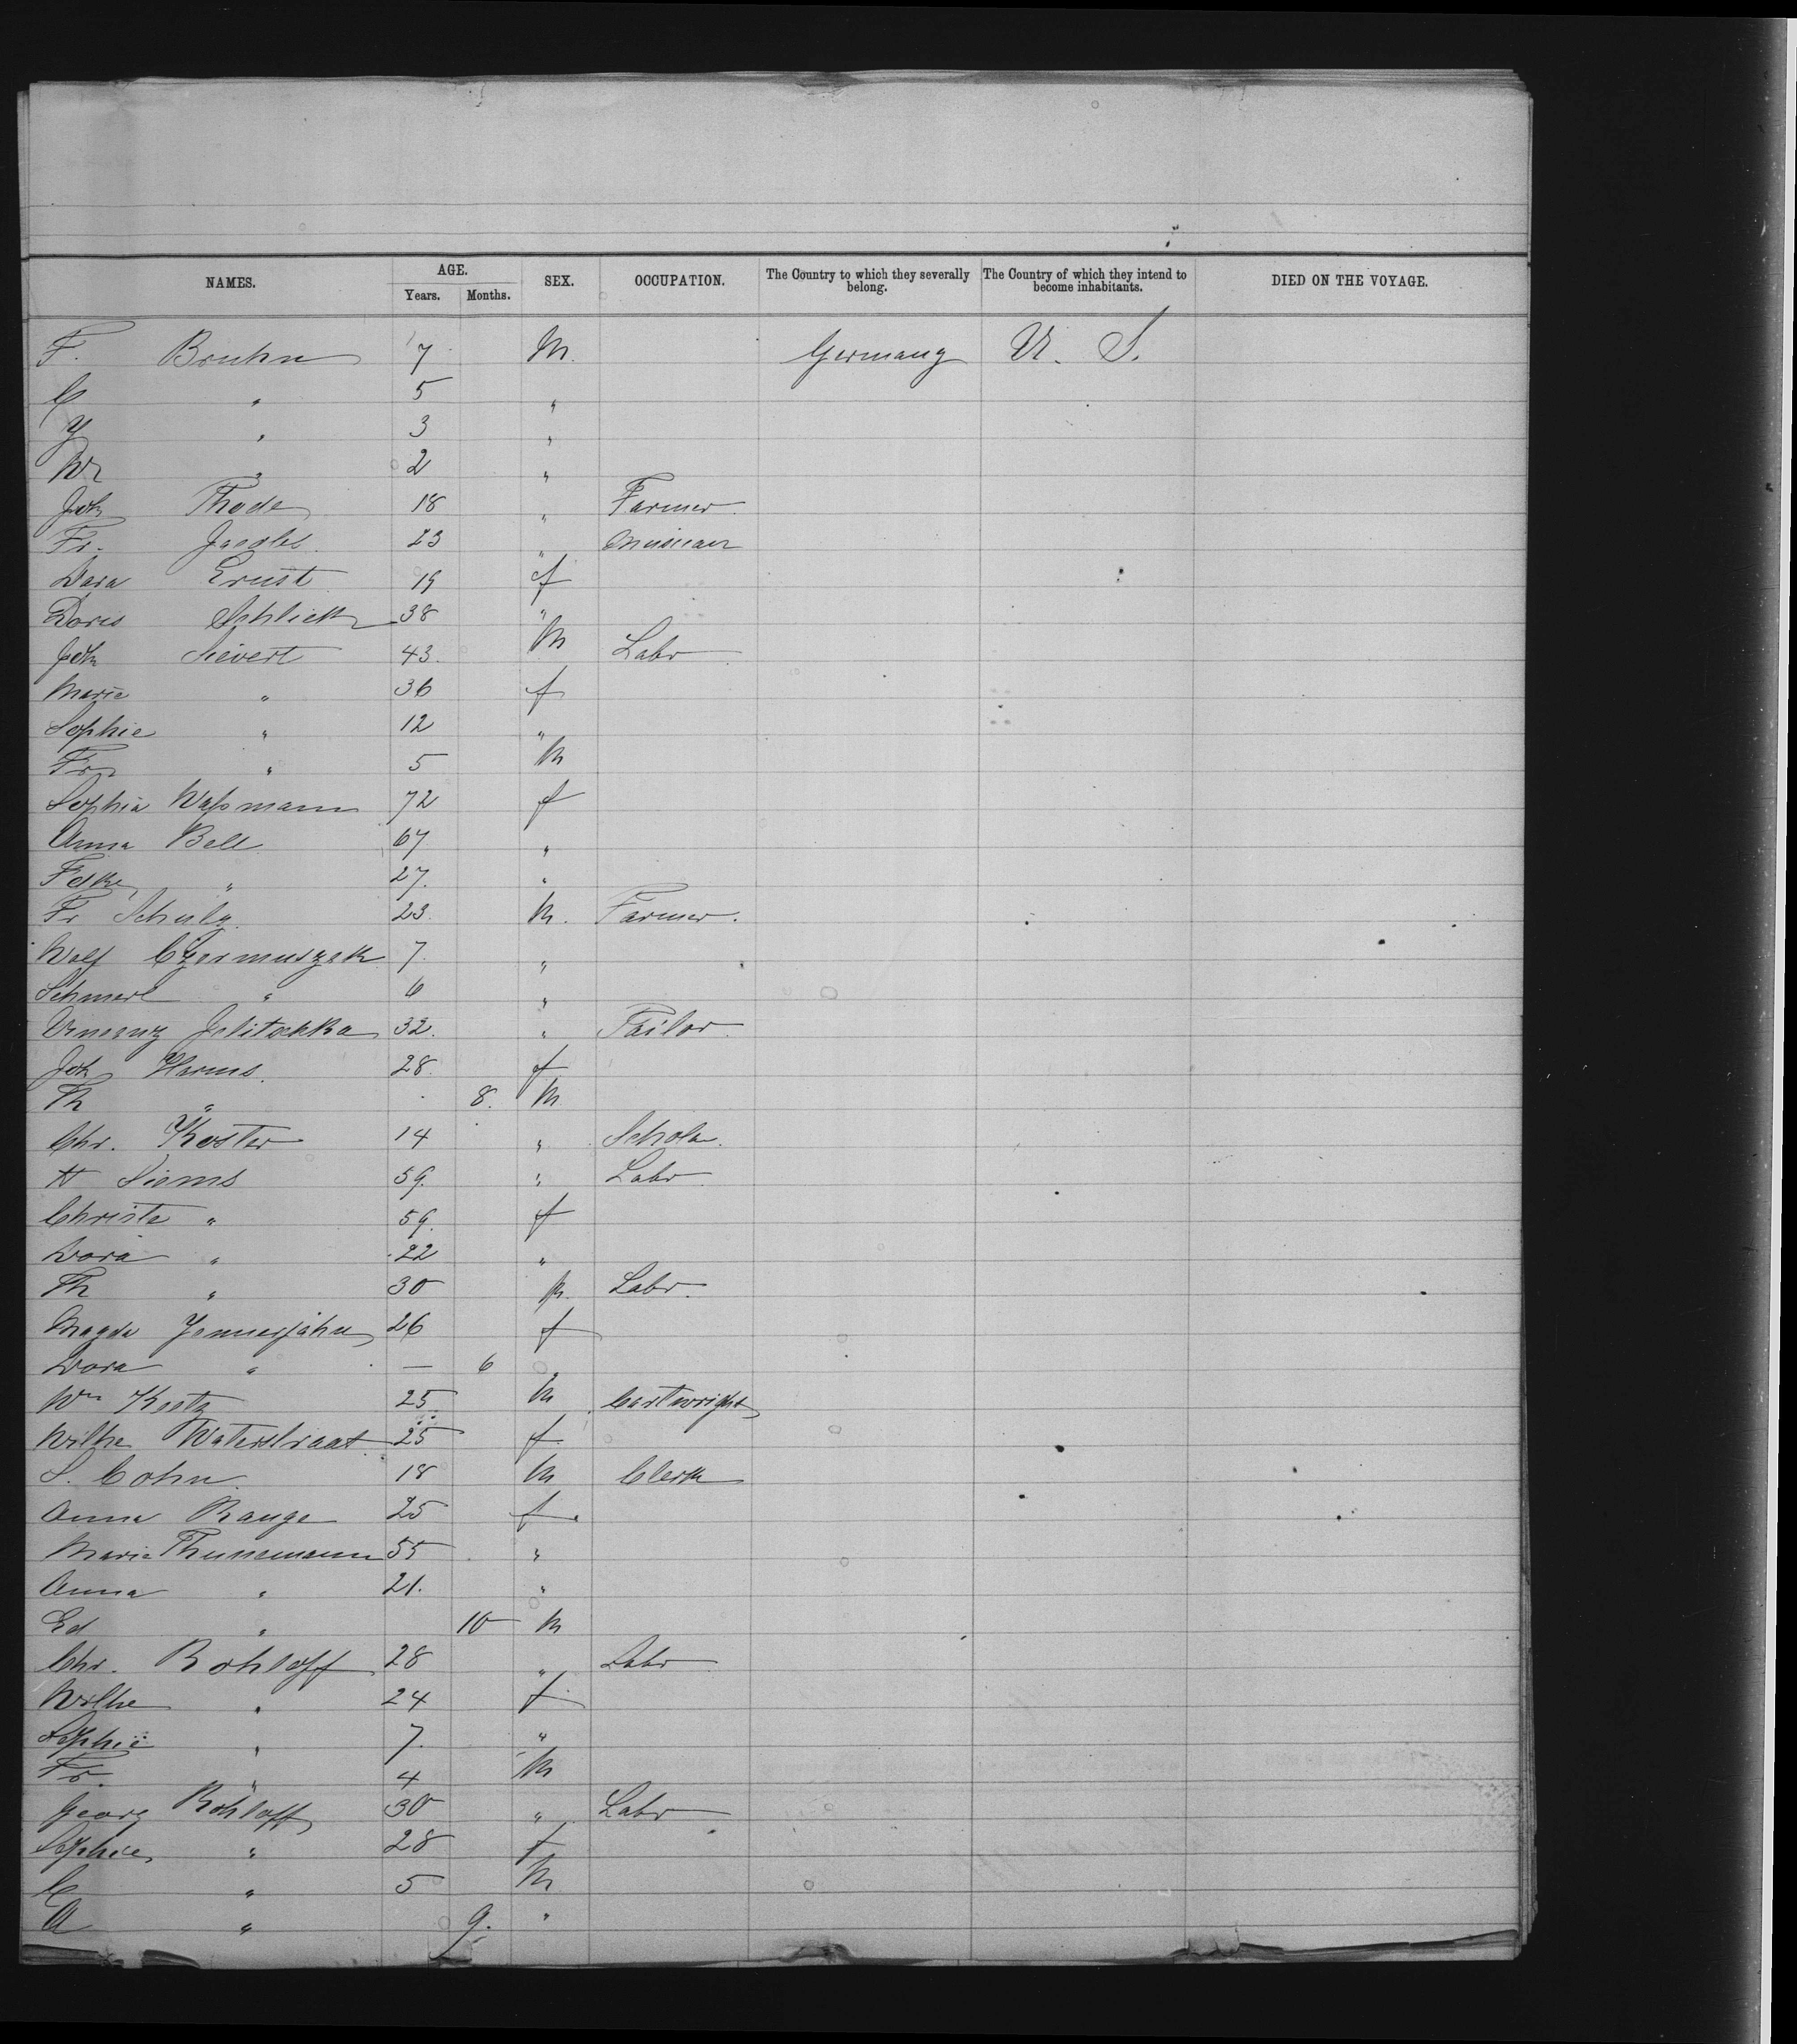 NAMES. AGE. Years. Months. SEX. OCCUPATION. The Country to which they severally belong. The Country of which they intend to become inhabitants. DIED ON THE VOYAGE.
F. Bruhn 7 M. Germany U. S.
C " 5 "
Y " 3 "
Wm " 2 "
Joh Thode 18 " Farmer
Fr. Jacobs 23 " Musician
Dora Ernst 19 f
Doris Schlieck 38 "
Joh Sievert 43. M Labr
Marie " 36 f
Sophie " 12 "
Fr. " 5 M
Sophia Waßmann 72 f
Anna Bell 67 "
Folke " 27. "
Fr Schulz 23. M. Farmer.
Wolf Czermuszak 7. "
Schmerl " 6 "
Vincenz Jelitschka 32. " Tailor.
Joh Harms. 28. f
Th " 8. M
Chr. Koster 14 " Scholar.
H Siems 59. " Labr
Christe " 59. f
Dora " 22 "
Th " 30 M. Labr.
Magda Jennerjahn 26 f
Dora " — 6 "
Wm Kootz 25. M Cartwright
Wilhe Waterstraat 25 f
S. Cohn. 18 M Clerk
Anna Range 25 f.
Marie Thunemann 55 "
Anna " 21. "
Ed " 10 M
Chr. Rohloff 28 " Labr
Wilhe " 24 f
Sophie " 7. "
Fr. " 4 M
Georg Rohloff 30 " Labr
Sophie " 28 f
C " 5 M
A " 9. "